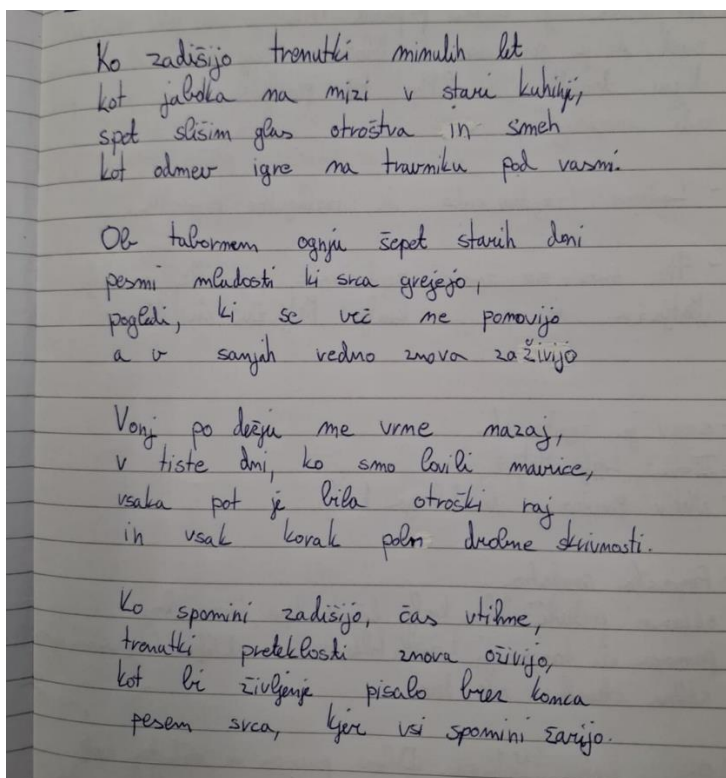 Ko zadišijo trenutki minulih let
kot jabolka na mizi v stari kuhinji,
spet slišim glas otroštva in smeh
kot odmev igre na travniku pod vasmi.
Ob tabornem ognju šepet starih dni
pesmi mladosti ki srca grejejo,
pogledi, ki se več ne ponovijo
a v sanjah vedno znova zaživijo
Vonj po dežju me vrne nazaj,
v tiste dni, ko smo lovili mavrice,
vsaka pot je bila otroški raj
in vsak korak poln drobne skrivnosti.
Ko spomini zadišijo, čas utihne,
trenutki preteklosti znova oživijo,
kot bi življenje pisalo brez konca
pesem srca, kjer vsi spomini žarijo.